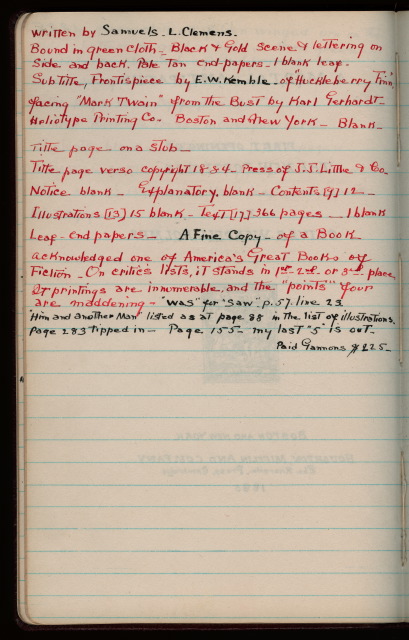 Written by Samuel S. L. Clemens.
Bound in green Cloth - Black & Gold Scene & lettering on
Side and back. Pale Tan end-papers - 1 blank leaf -
Sub Title, Frontispiece by E.W. Kemble - of "Huckleberry Finn,"
facing "Mark Twain" from the Bust by Karl Gerhardt -
Heliotype Printing Co. Boston and New York - Blank -
Title page on a stub -
Title page verso copyright 1884 - Press of J.J. Little & Co.
Notice blank - Explanatory, blank - Contents [9] 12 -
Illustrations [13] 15 blank - Text [17] 366 pages - 1 blank
Leaf - End papers - A Fine Copy - of a Book
acknowledged one of America's Great Books of
Fiction - On critics lists, it stands in 1st - 2d. or 3rd place,
Its printings are innumerable, and the "points" four
are maddening - "was" for "saw" p. 57. line 23
"Him and another Man" listed as at page 88 in the list of illustrations.
Page 283 tipped in - Page 155 - my last "5" is out -
Paid Gannons $225 -
BOSTON AND NEW YORK
HOUGHTON MIFFLIN AND COMPANY
The Riverside Press, Cambridge